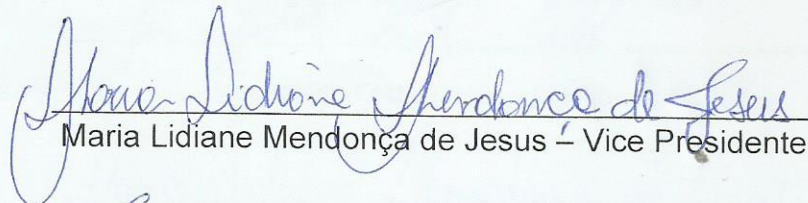 Maria Lidiane Mendonça de Jesus
Maria Lidiane Mendonça de Jesus – Vice Presidente